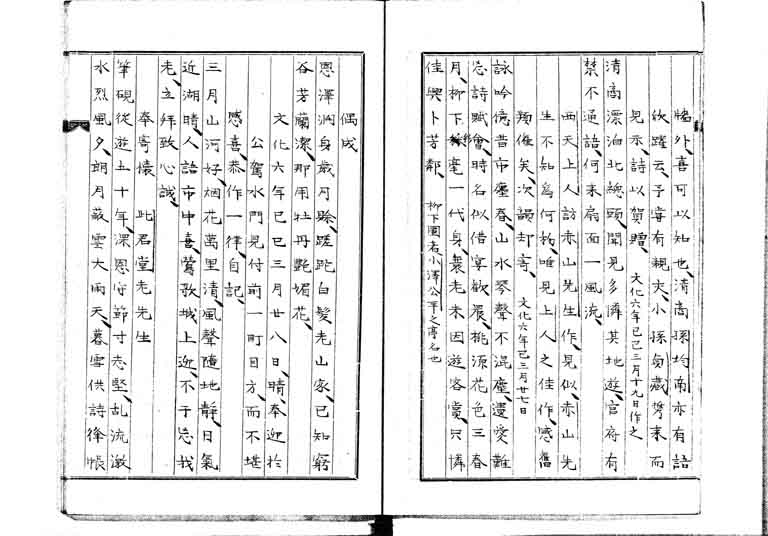 牆外、喜可以知也、清高孫均南亦有語
欣躍云、予寄有親夫、小孫貞蔵携来而
見示、詩以賀贈、文化六年己巳三月十九日作之
清高漂泊北總頭、聞見多憐某地遊、官府有
禁不通語、何来扇面一風流、
西天上人訪赤山先生作、見似赤山先
生不知為何物、唯見上人之佳作、感舊
頻催矣、次韻却寄、文化六年己三月廿七日
詠吟憶昔市塵春、山水琴聲不混塵、遺愛難
忘詩賦繪、時名似借宴欲晨、桃源花色三春
月、柳下毫一代身、衰老未因遊客賞、只憐
佳興卜芳鄰、柳下園者小澤公平之亭名也
偶成
恩澤潤身歳月賖、蹉跎白髪老山家、已知窮
谷芳蘭潔、那用牡丹艶媚花、
文化六年己巳三月廿八日、晴奉迎於
公駕水門見付前一町目方、而不堪
感喜、恭作一律、自記、
三月山河好、烟花萬里清、風聲随地静、日氣
近湖晴、人語市中喜、鶯歌城上迎、不于忘我
老、立拜致心誠、
奉寄懐 此君堂老先生
筆硯從遊五十年、深恩守節寸志堅、乱流激
水烈風夕、朗月蔽雲大雨天、暮雪供詩絳帳